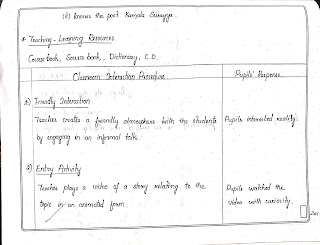 (d) knows the poet Kamala Surayya.
* Teaching - Learning Resources.
Course book, Source book, Dictionary, C.D.
Classroom Interaction Procedure
Pupils' Response.
1) Friendly Interaction
Teacher creates a friendly atmosphere with the students
by engaging in an informal talk.
Pupils interacted readily.
2) Entry Activity
Teacher plays a video of a story relating to the
topic in an animated form.
Pupils watched the
video with curiosity.